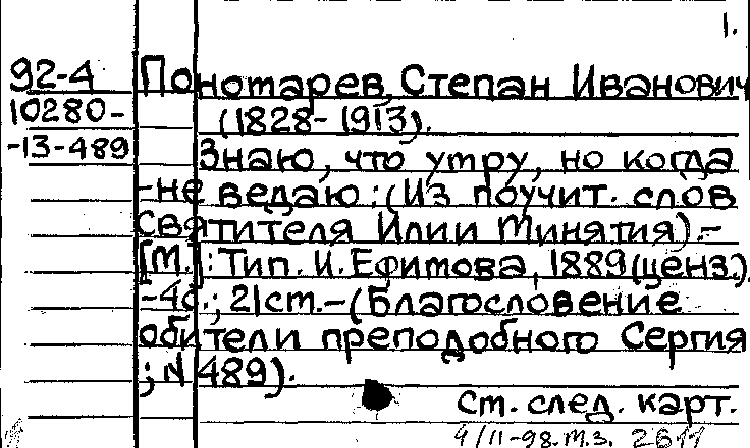 1.
92-4 Пономарев, Степан Иванович
10280- (1828-1913).
-13-489 Знаю, что умру, но когда
-не ведаю: (Из поучит. слов
святителя Илии Минятия).-
[М.]: Тип. И. Ефимова, 1889 (ценз.).
-4с.; 21 cm.-(Благословение
обители преподобного Сергия
; N 489).
См. след. карт.
4/II-98. т.з. 2611